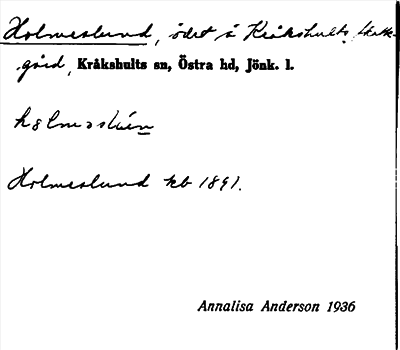 Holmeslund, ödet å Kråkshults
gård, Kråkshults sn, Östra hd, Jönk. l.
Holmeslund kb 1891.
Annalisa Anderson 1936